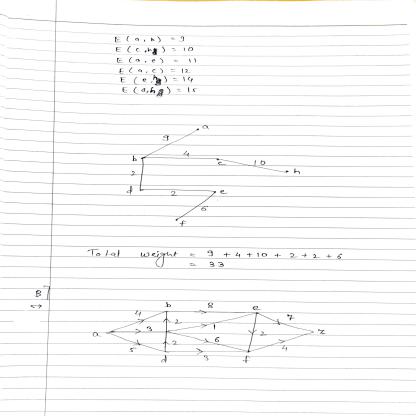 E(a,b) = 9
E(c,h) = 10
E(a,e) = 11
E(a,c) = 12
E(e, ) = 14
E(d,h) = 15
a
9
b 4 c 10 h
2
d 2 e
6
f
Total weight = 9+4+10+2+2+6
= 33
B]
↔
b 8 e
4 2 7
a 3 1 2 z
5 2 6 4
d 3 f